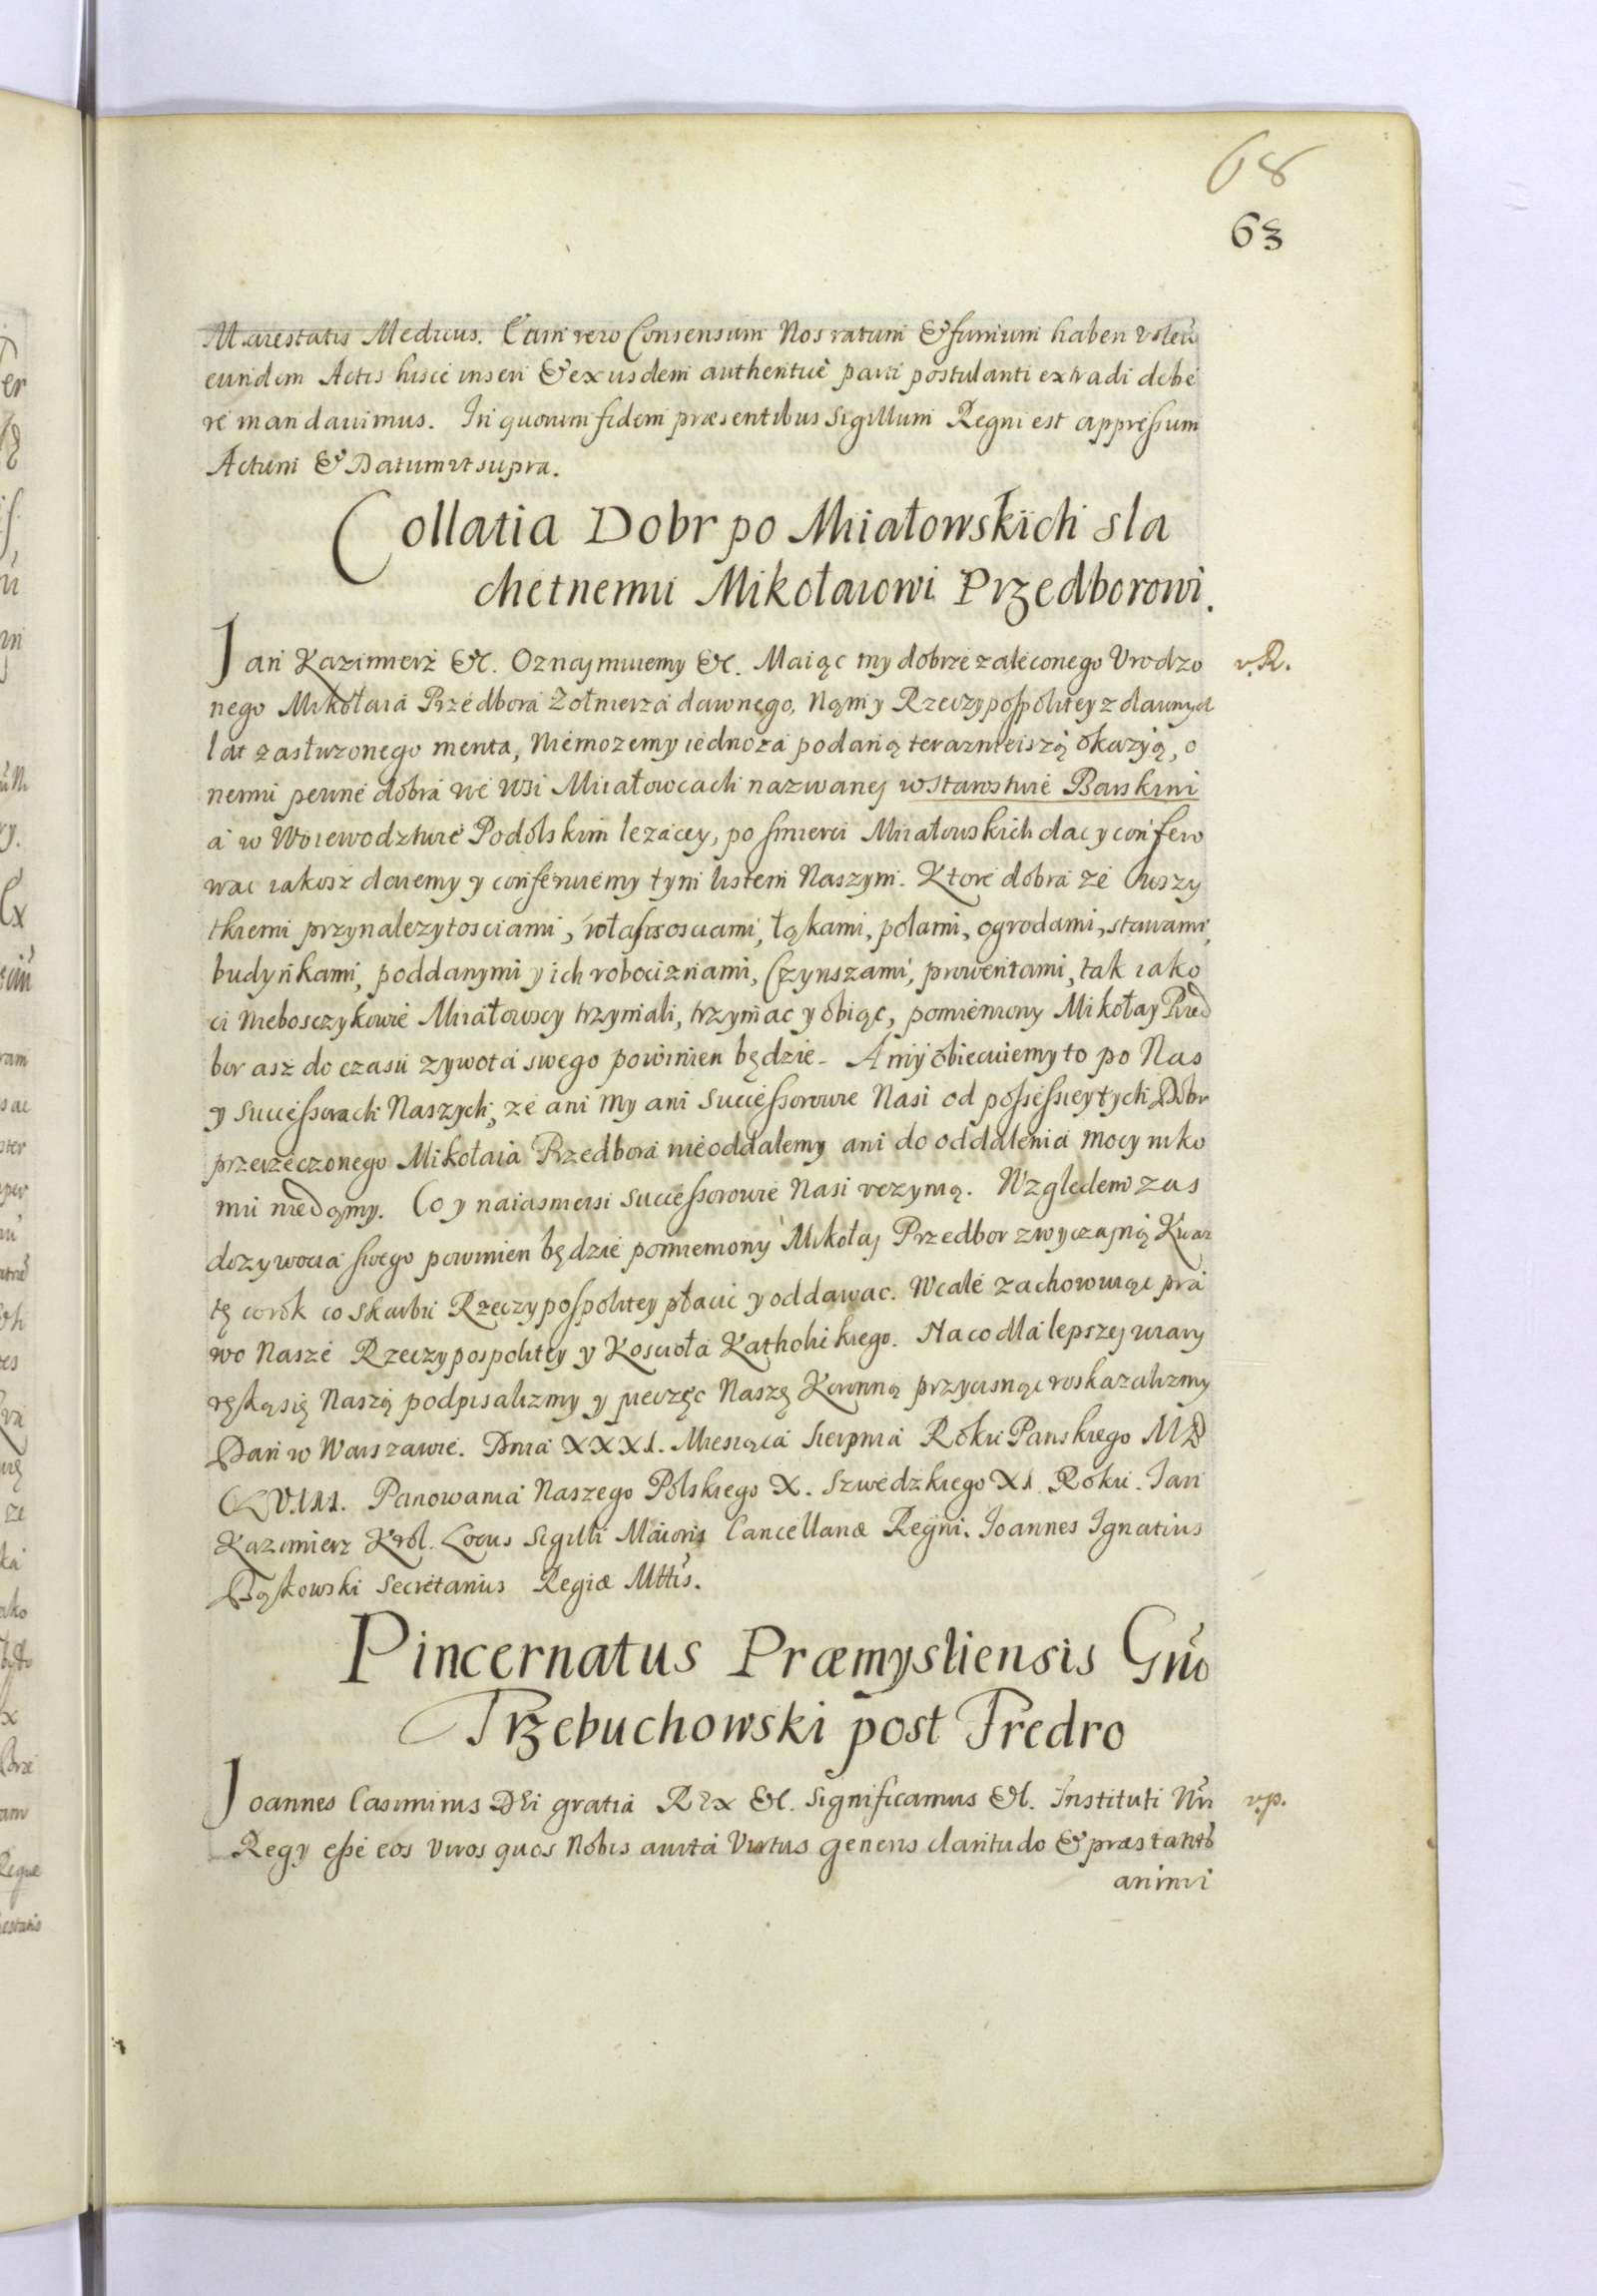 68
63
Maiestatis Medicus. Eam vero Consensum Nos ratum & firmum haben volen
eundem Actis hisce inseri & ex iisdem authentice parti postulanti extradi debe
re mandavimus. In quorum fidem præsentibus Sigillum Regni est appressum
Actum & Datum ut supra.
Collatia Dobr po Miałowskich sla
chetnemu Mikołaiowi Przedborowi.
Jan Kazimierz &c. Oznajmuiemy &c. Maiąc my dobrze zaleconego Urodzo
v.R.
nego Mikołaia Przedbora Zołnierza dawnego, Nąm y Rzeczypospolitey z dawnych
lat zasłuzonego merita, Niemozemy iedno za podaną teraznieiszą okazyą, o
nemu pewne dobra we wsi Miiałowcach nazwanej w Starostwie Barskim
a w Woiewodztwie Podolskim lezącey, po smierci Miiałowskich dac y confero
wac iakosz daiemy y conferuiemy tym listem Naszym. Ktore dobra ze wszy
tkiemi przynalezytosciami, własnosciami, łąkami, polami, ogrodami, stawami,
budynkami, poddanymi y ich robociznami, Czynszami, prowentami, tak iako
ci nieboszczykowie Miiałowscy trzymali, trzymac y obiąc, pomieniony Mikołay Przed
bor asz do czasu zywota swego powinien będzie. A my obiecuiemy to po Nas
y Successorach Naszych, ze ani My ani Successorowie Nasi od possessiey tych Dobr
przerzeczonego Mikołaia Przedbora nie oddalemy ani do oddalenia mocy niko
mu niedąmy. Co y naiasnieisi Successorowie Nasi vczynią. Względem zas
dozywocia swego powinien będzie pomieniony Mikołaj Przedbor zwyczajną Kwar
tę corok co skarbu Rzeczypospolitey płacic y oddawac. Wcale zachowuiąc pra
wo Nasze Rzeczypospolitey y Koscioła Katholickiego. Na co dla lepszej wiary
ręką się Naszą podpisalizmy y pieczęc Naszę Koronną przycisnąc roskazalizmy
Dan w Warszawie. Dnia XXXI. Miesiąca Sierpnia Roku Panskiego MD
CLVIII. Panowania Naszego Polskiego X. Szwedzkiego XI. Roku. Jan
Kazimierz Krol. Locus Sigilli Maioris Cancellariæ Regni. Joannes Ignatius
Bąkowski Secretarius Regiæ Mttis.
Pincernatus Præmysliensis Gńo
Trzebuchowski post Fredro
Joannes Casimirus Dei gratia Rex &c. Significamus &c. Instituti Nri
v.p.
Regy esse eos Viros quos Nobis avita Virtus generis claritudo & præstantis
animi